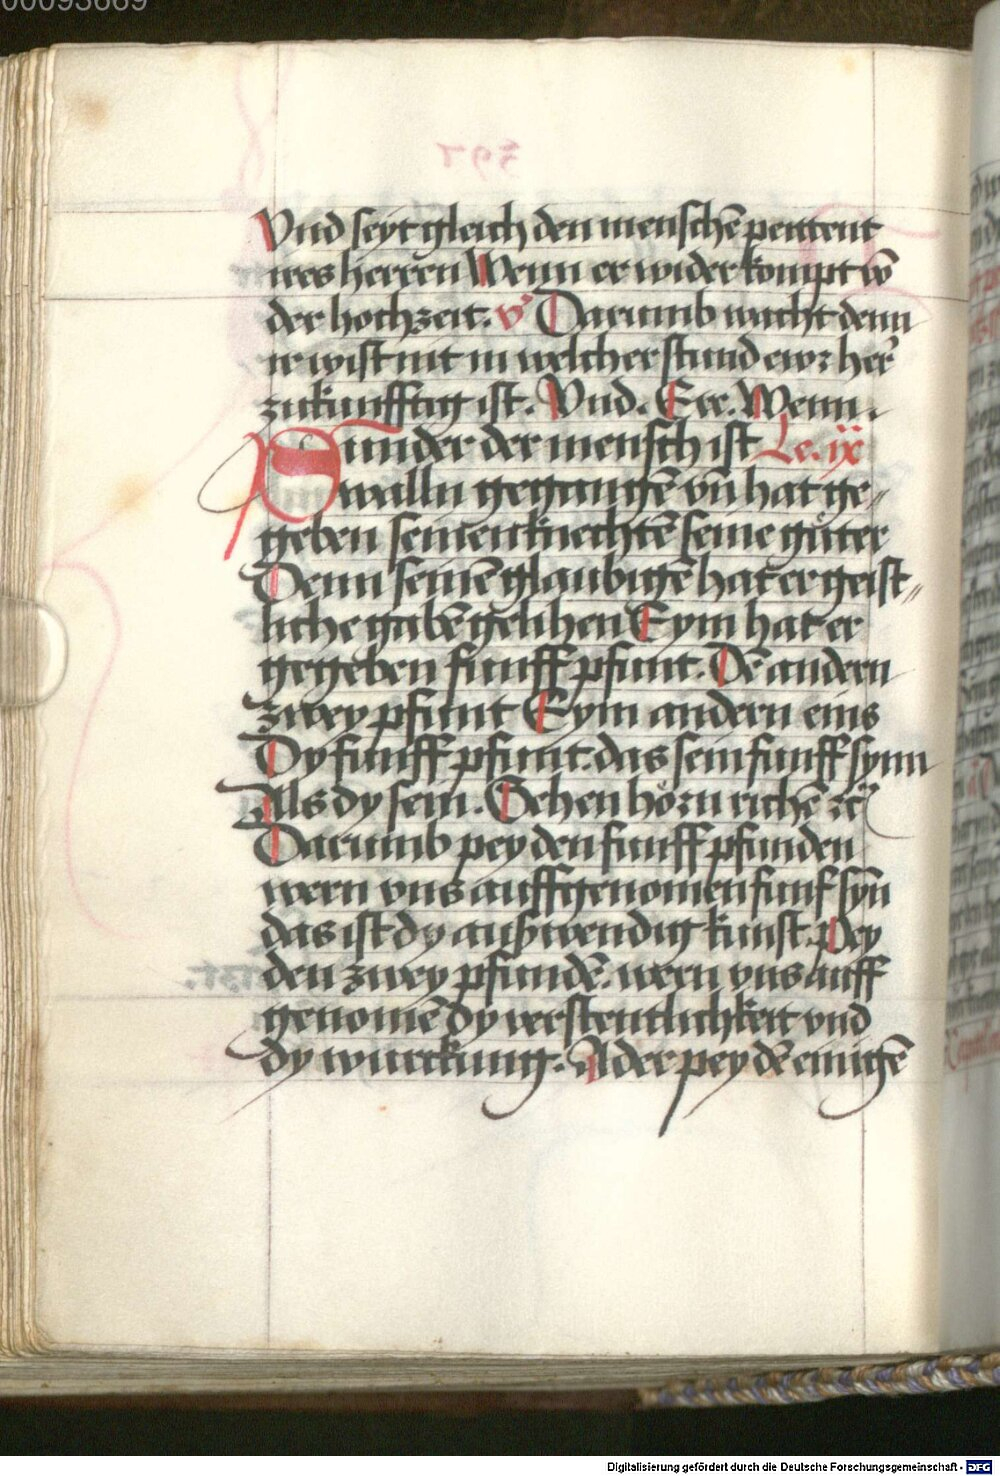 00093669
Vnd seyt gleich den menschē peittent
ires herren Wenn er wider kompt vō
der hochzeit. v̾ Darumb wacht denn
ir wist nit in welcher stund ewr her̄
zukunfftig ist. Vnd. Ere. Wenn.
Sunder der mensch ist Le. ix
walln gegangē vn̄ hat ge⸗
geben seinen knechtē seine gůter
Denn seinē glaubigē hat er geist⸗
liche gabē gelihen Eym hat er
gegeben funff pfunt. Dē andern
zwey pfunt Eym andern eins
Dy funff pfunt. das sein funff synn
Als dy sein. Sehen hörn richē ⁊c̄
Darumb pey den funff pfunden
wern vns auffgenomen funf syn̄
das ist dy außwendig kunst. Pey
den zwey pfundē. wern vns auff
genomē dy verstentlichkeit vnd
dy wurckung. Ader pey dē einigē
Digitalisierung gefördert durch die Deutsche Forschungsgemeinschaft - DFG